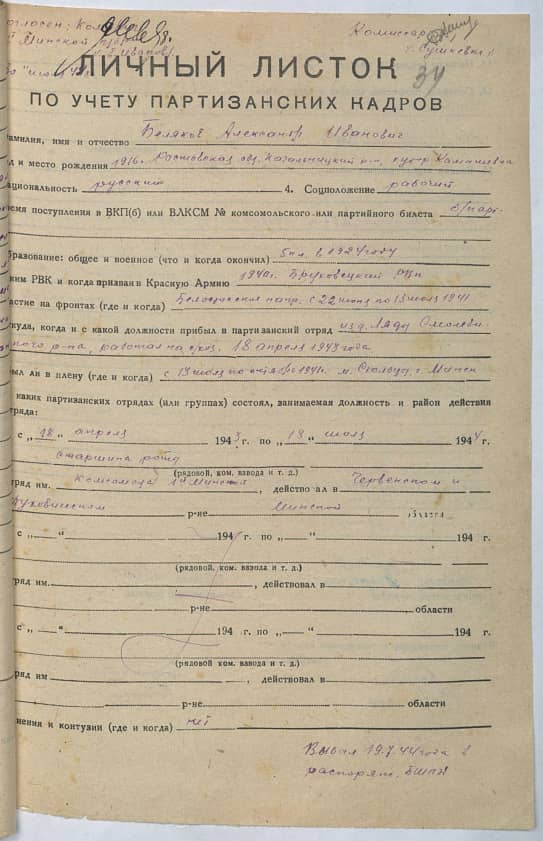 Комиссар
Минской
34
ЛИЧНЫЙ ЛИСТОК
ПО УЧЕТУ ПАРТИЗАНСКИХ КАДРОВ
амилия, имя и отчество Беляков Александр Иванович
д и место рождения 1916г. Ростовская обл.
ациональность русский 4. Соцположение рабочий
емя поступления в ВКП(б) или ВЛКСМ № комсомольского или партийного билета б/парт.
бразование: общее и военное (что и когда окончил) 5кл. в 1924 году
ким РВК и когда призван в Красную Армию 1940г. Брюховецкий
астие на фронтах (где и когда) Белостокское напр. с 22 июня по 13 июля 1941
куда, когда и с какой должности прибыл в партизанский отряд из д. Ляды Смолеви-
р-на, работал на 18 апреля 1943 года
ыл ли в плену (где и когда) с 13 июля по октябрь 1941г. м. Столбцы, г. Минск
каких партизанских отрядах (или группах) состоял, занимаемая должность и район действия
тряда:
с „18“ апреля 1943 г. по „19“ июля 1944 г.
Старшина роты
(рядовой, ком. взвода и т. д.)
тряд им. Комсомола 1й Минской, действовал в Червенском и
р-не Минской области
с „ “ 194 г. по „ “ 194 г.
(рядовой, ком. взвода и т. д.)
тряд им. , действовал в
р-не области
с „ “ 194 г. по „ “ 194 г.
(рядовой, ком. взвода и т. д.)
тряд им. , действовал в
р-не области
нения и контузии (где и когда) нет
Выбыл 19.7.44 года в
распоряж. БШПД